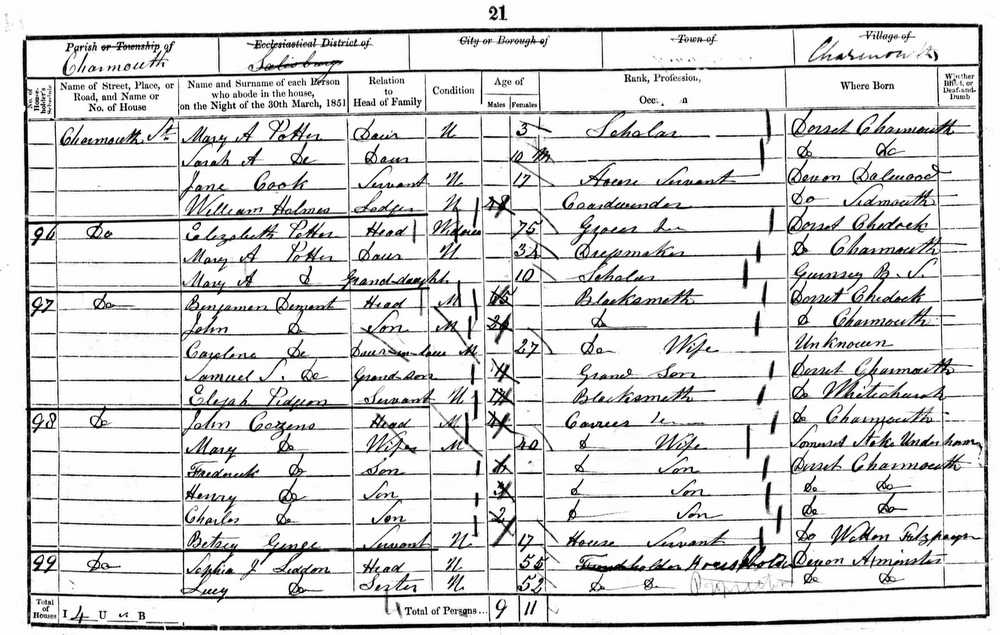 21
Parish or Township of Ecclesiastical District of City or Borough of Town of Village of
Charmouth Salisbury Charmouth
No. of House-holder's Schedule Name of Street, Place, or Road, and Name or No. of House Name and Surname of each Person who abode in the house, on the Night of the 30th March, 1851 Relation to Head of Family Condition Age of Males Females Rank, Profession, Occ Where Born Whether Blind, or Deaf-and-Dumb
Charmouth St. Mary A Potter Daur U 3 Scholar Dorset Charmouth
Sarah A Do Daur 10 m Do Do
Jane Cook Servant U 17 House Servant Devon Dalwood
William Holmes Lodger U 28 Coardwinder Do Sidmouth
96 Do Elizabeth Potter Head Widow 75 Grocer Dorset Chidock
Mary A Potter Daur U 32 Dressmaker Do Charmouth
Mary A D Grand-daughtr 10 Scholar Guernsey B. S.
97 Do Benjamen Head M 65 Blacksmith Dorset Chidock
John Do Son M 26 D D Charmouth
Caroline Do Daur-in-law M 27 Do Wife Unknown
Samuel S. Do Grand Son 4 Grand Son Dorset Charmouth
Elijah Pidgeon Servant U 17 Blacksmith Do Whitechurch
98 Do John Cozens Head M 41 Carrier Do Charmouth
Mary Do Wife M 40 D Wife Somerset Stoke Under
Frederick Do Son D Son Dorset Charmouth
Henry Do Son 3 D Son Do Do
Charles Do Son 2 D Son Do Do
Betsey Genge Servant U 17 House Servant Do
99 Do Sophia J Liddon Head U 55 Fundholder Householder Devon Axminster
Lucy Do Sister U 52 Do Do Do Do
Total of Houses I 4 U B Total of Persons... 9 11